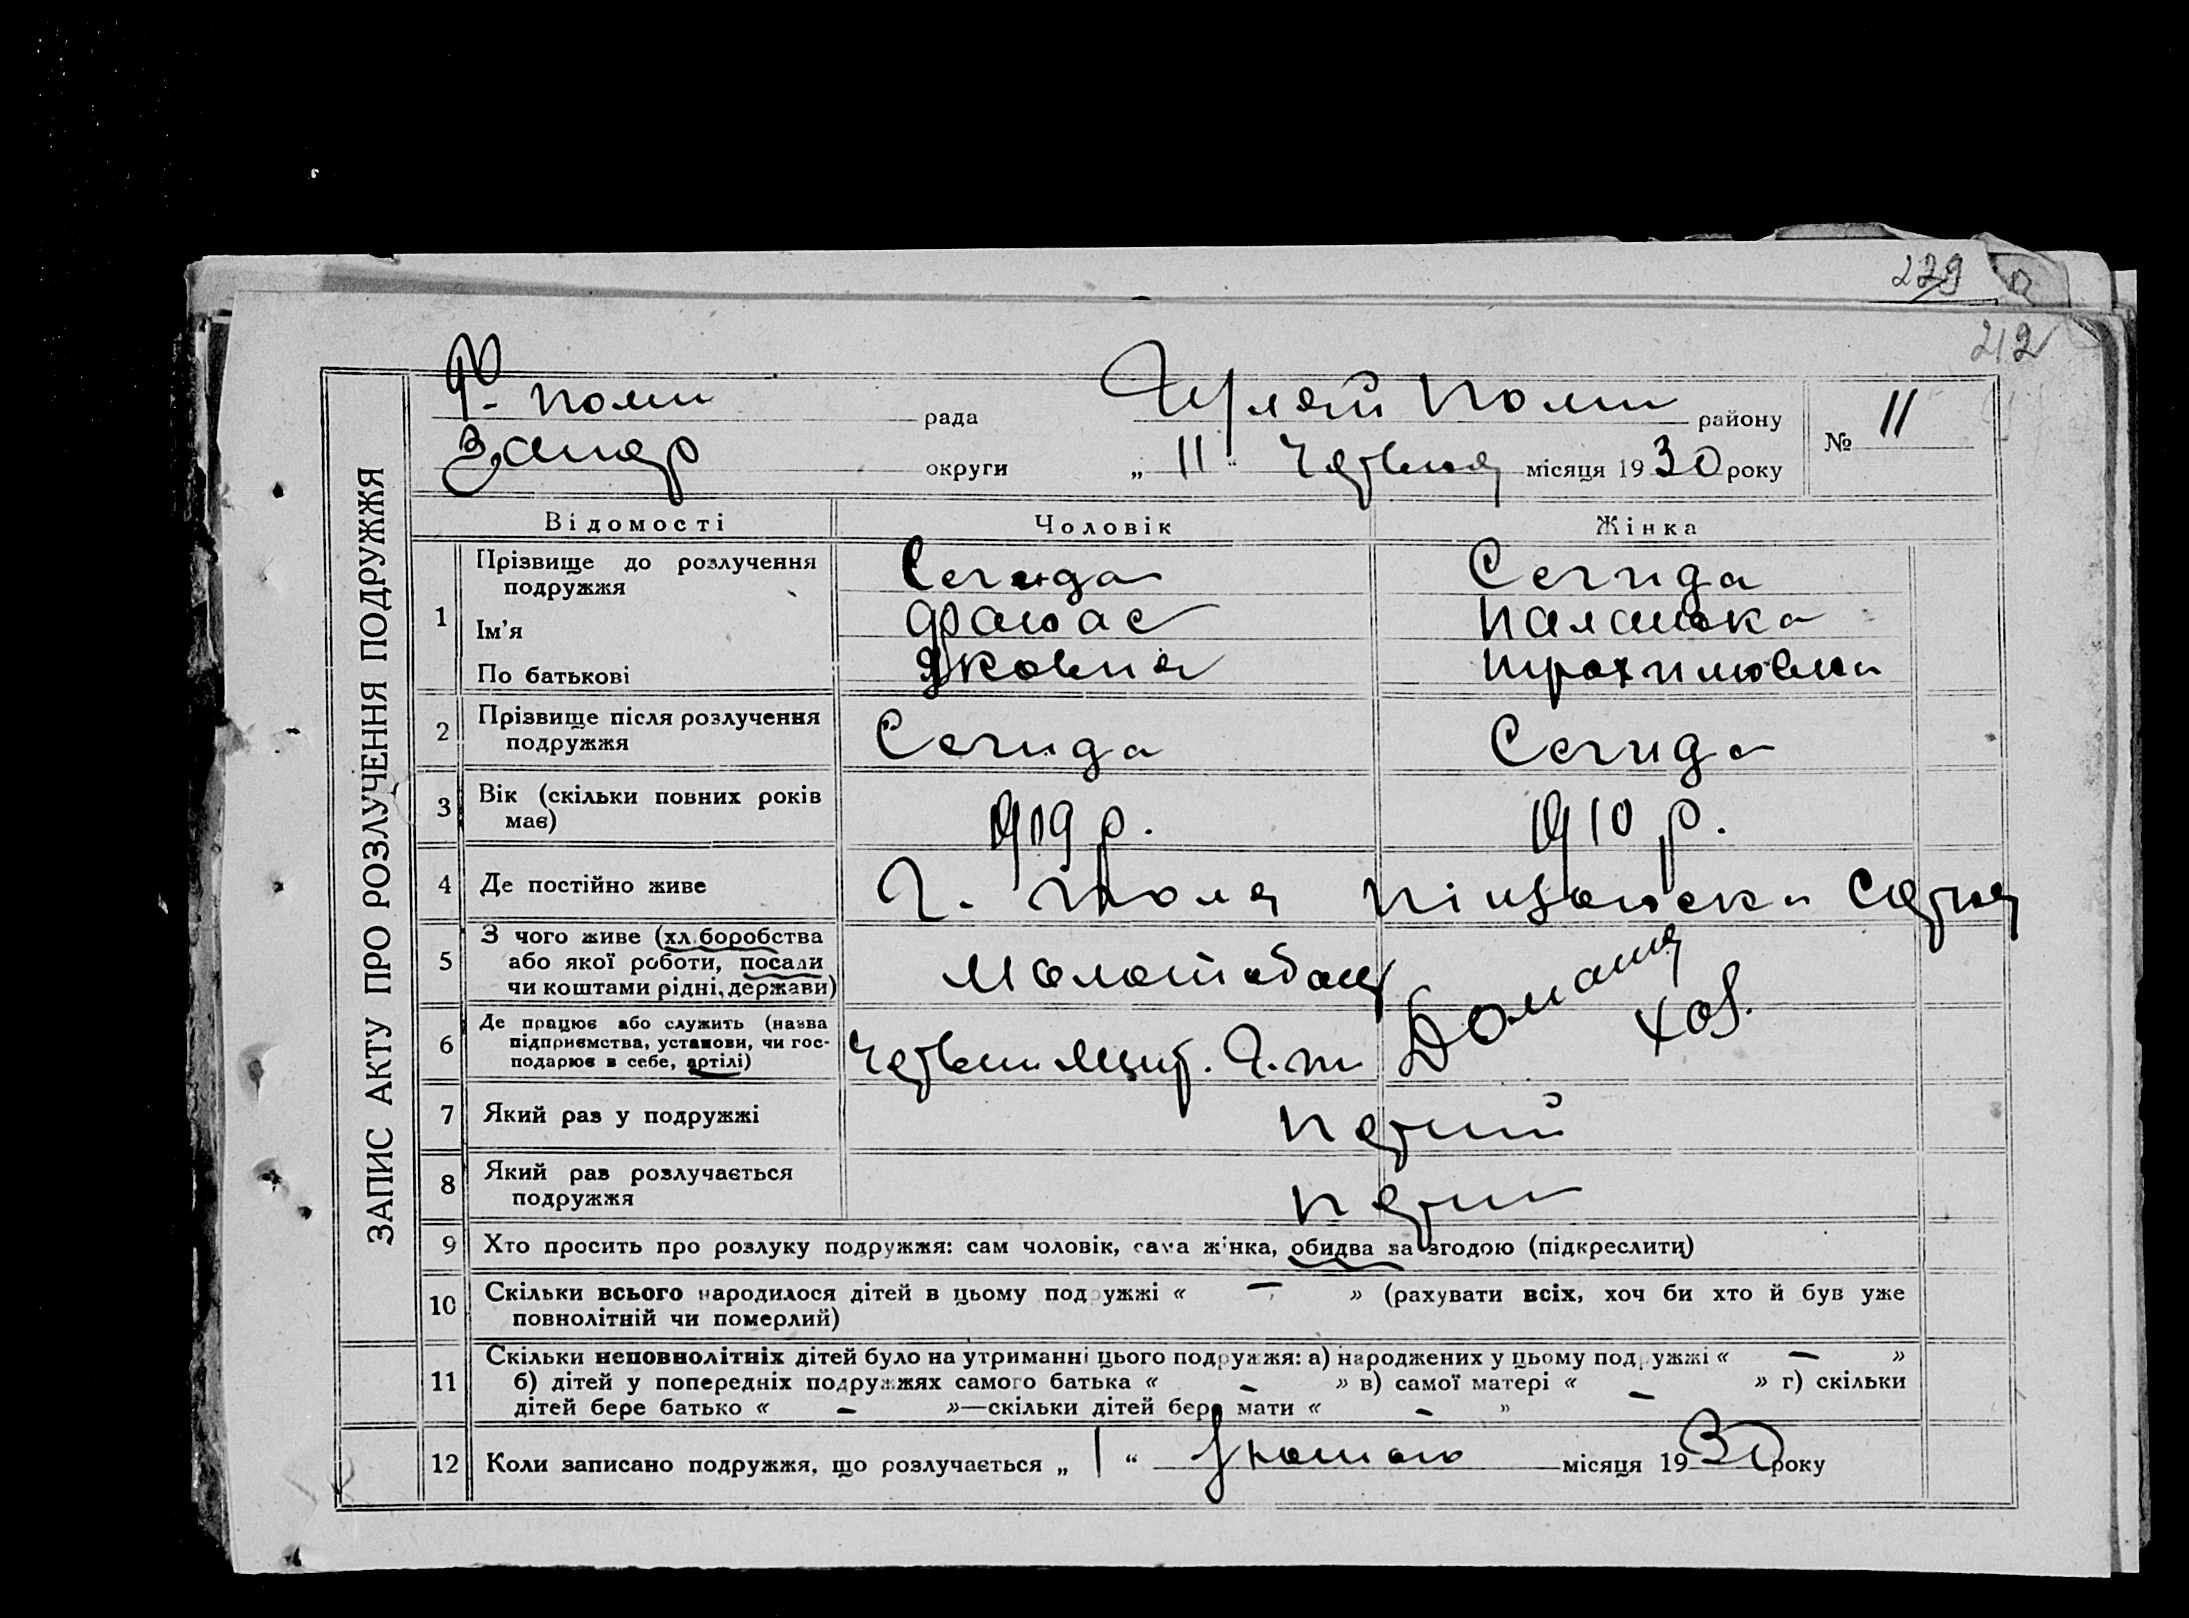 229
212
ЗАПИС АКТУ ПРО РОЗЛУЧЕННЯ ПОДРУЖЖЯ
рада
Гуляй Поли району
№ 11
Запор округи
„ 11 “ Червня місяця 1930 року
Відомості Чоловік Жінка
1 Прізвище до розлучення подружжя Сегида Сегида
Ім’я Фанас Палашка
По батькові Якович Трохимовна
2 Прізвище після розлучення подружжя Сегида Сегида
3 Вік (скільки повних років має) 1909 р. 1910 р.
4 Де постійно живе Г. Поля Піщанска Сотня
5 З чого живе (хл.боробства або якої роботи, посади чи коштами рідні, держави) Молотобоец Домашня
6 Де працює або служить (назва підприємства, установи, чи господарює в себе, артілі) хоз.
7 Який раз у подружжі перший
8 Який раз розлучається подружжя перш
9 Хто просить про розлуку подружжя: сам чоловік, сама жінка, обидва за згодою (підкреслити)
10 Скільки всього народилося дітей в цьому подружжі « — » (рахувати всіх, хоч би хто й був уже
повнолітній чи померлий)
11 Скільки неповнолітніх дітей було на утриманні цього подружжя: а) народжених у цьому подружжі « — »
б) дітей у попередніх подружжях самого батька « — » в) самої матері « — » г) скільки
дітей бере батько « — »—скільки дітей бере мати « — »
12 Коли записано подружжя, що розлучається „ 1 “ місяця 1930 року